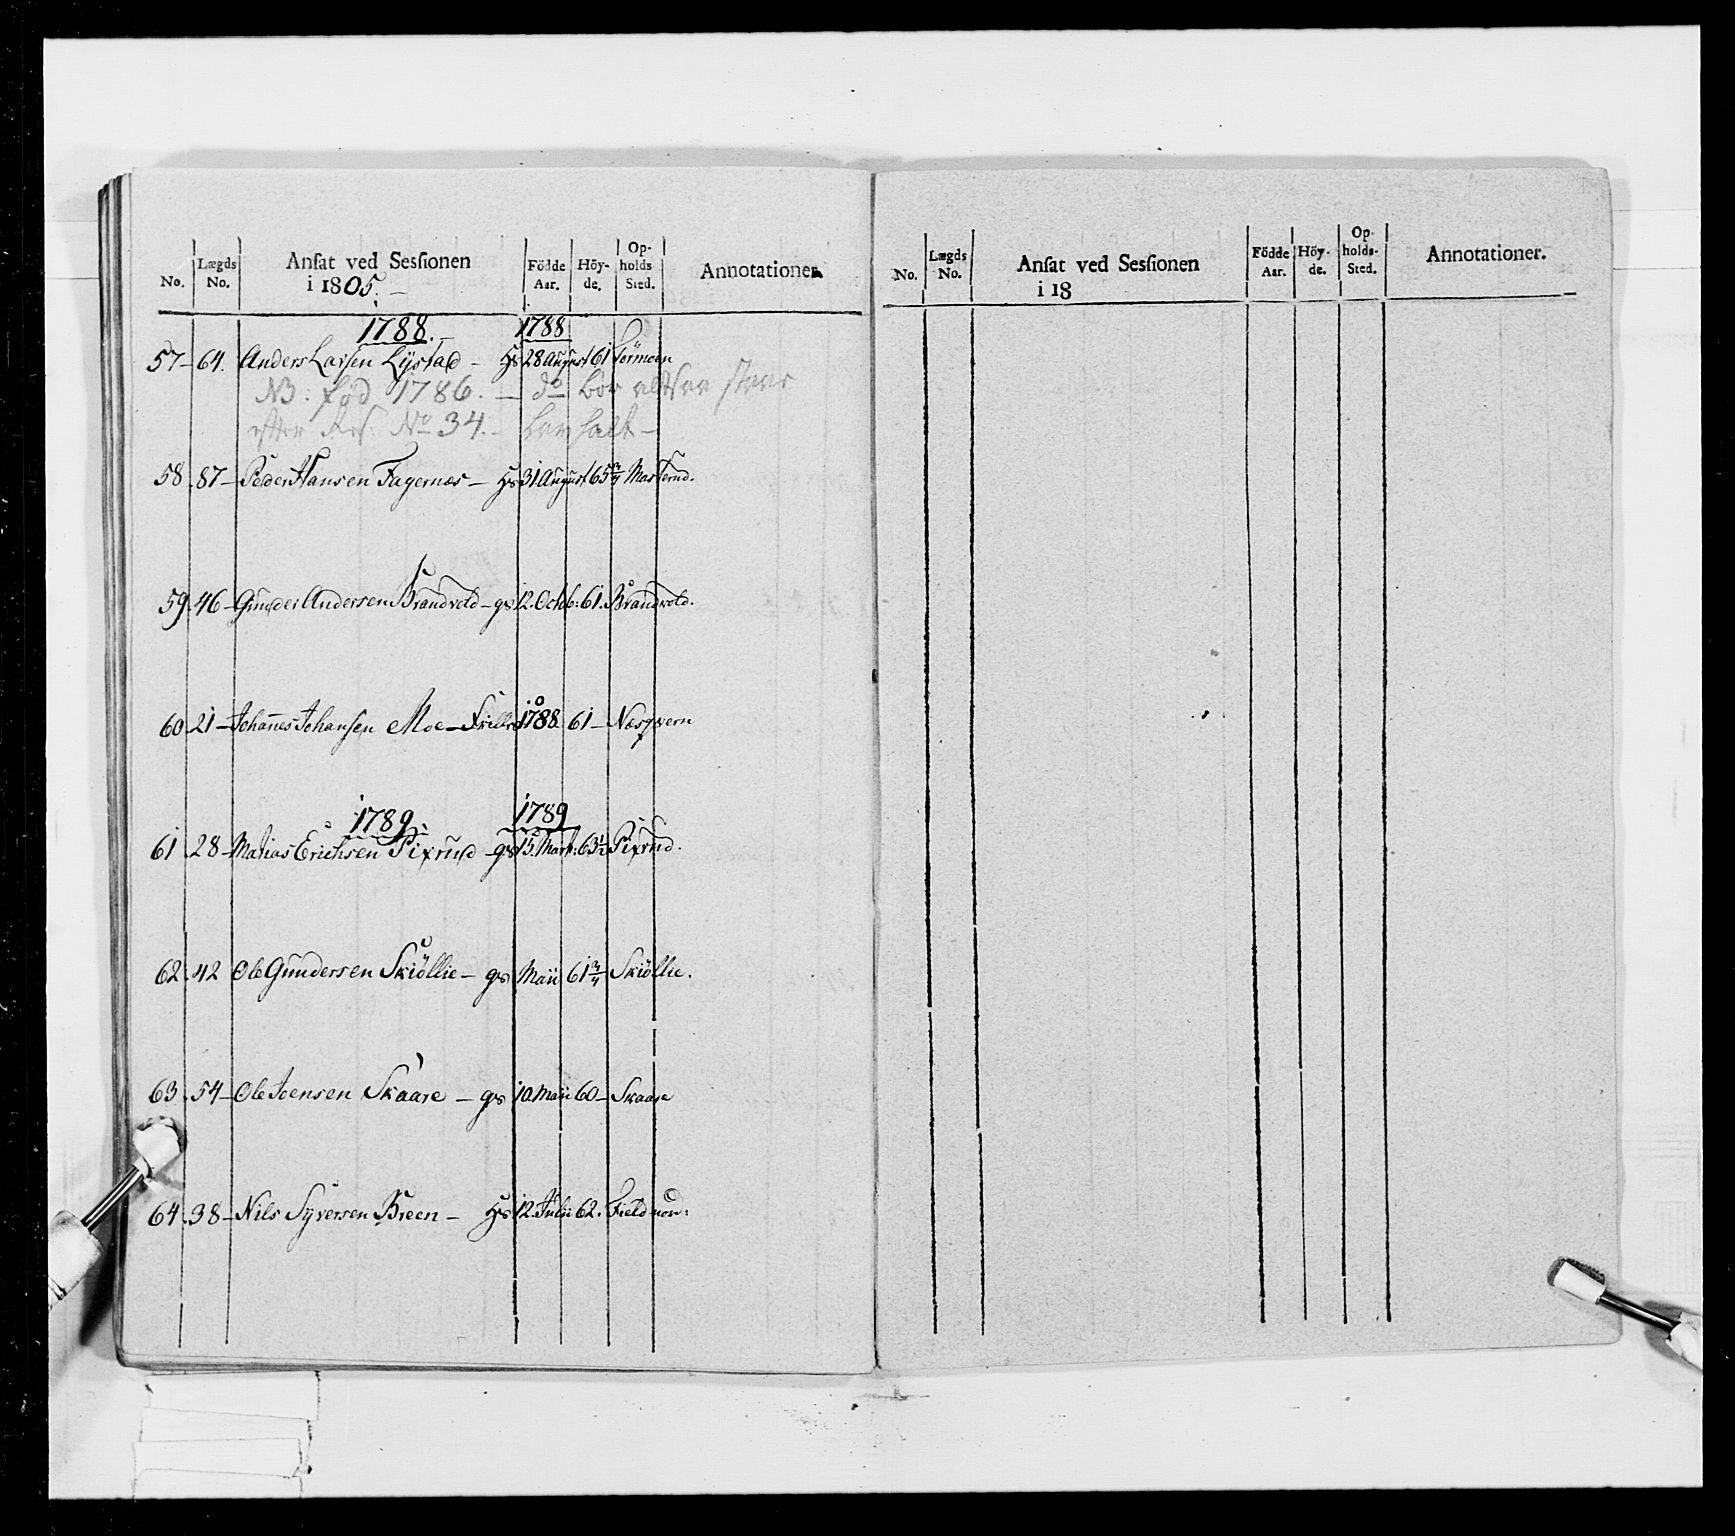 No. Lægds No. Ansat ved Sessionen i 1805. Födde Aar. Höy-de. Op-holds Sted. Annotationer.
1788. 1788
57 - 64. Anders Larsen Lÿstad - Hs 28 August 61 Tormoen
NB: fød 1786. - do bör altsaa staae
efter No 34. -
58. 87 - Peder Hansen Fagernæs - Hs 31 August 65 3/4 Masterud.
59. 46 - Gunder Andersen Brandvold - gs 12. Octb: 61. Brandvold.
60. 21 - Johannes Johansen Moe - 1788 61 - Næsqvern
1789. 1789
61 28 - Matias Erichsen Pixrud - gs 15. Mart: 63 1/2 Pixrud.
62. 42 Ole Gundersen Skiöllie - gs Maii 61 3/4 Skiöllie.
63. 54 - Ole Joensen Skaare - gs 10. Maii 60 - Skaare
64. 38 - Nils Sÿversen Breen - Hs 12. Julii 62. Field nor:
No. Lægds No. Ansat ved Sessionen i 18 Födde Aar. Höy-de. Op-holds-Sted. Annotationer.